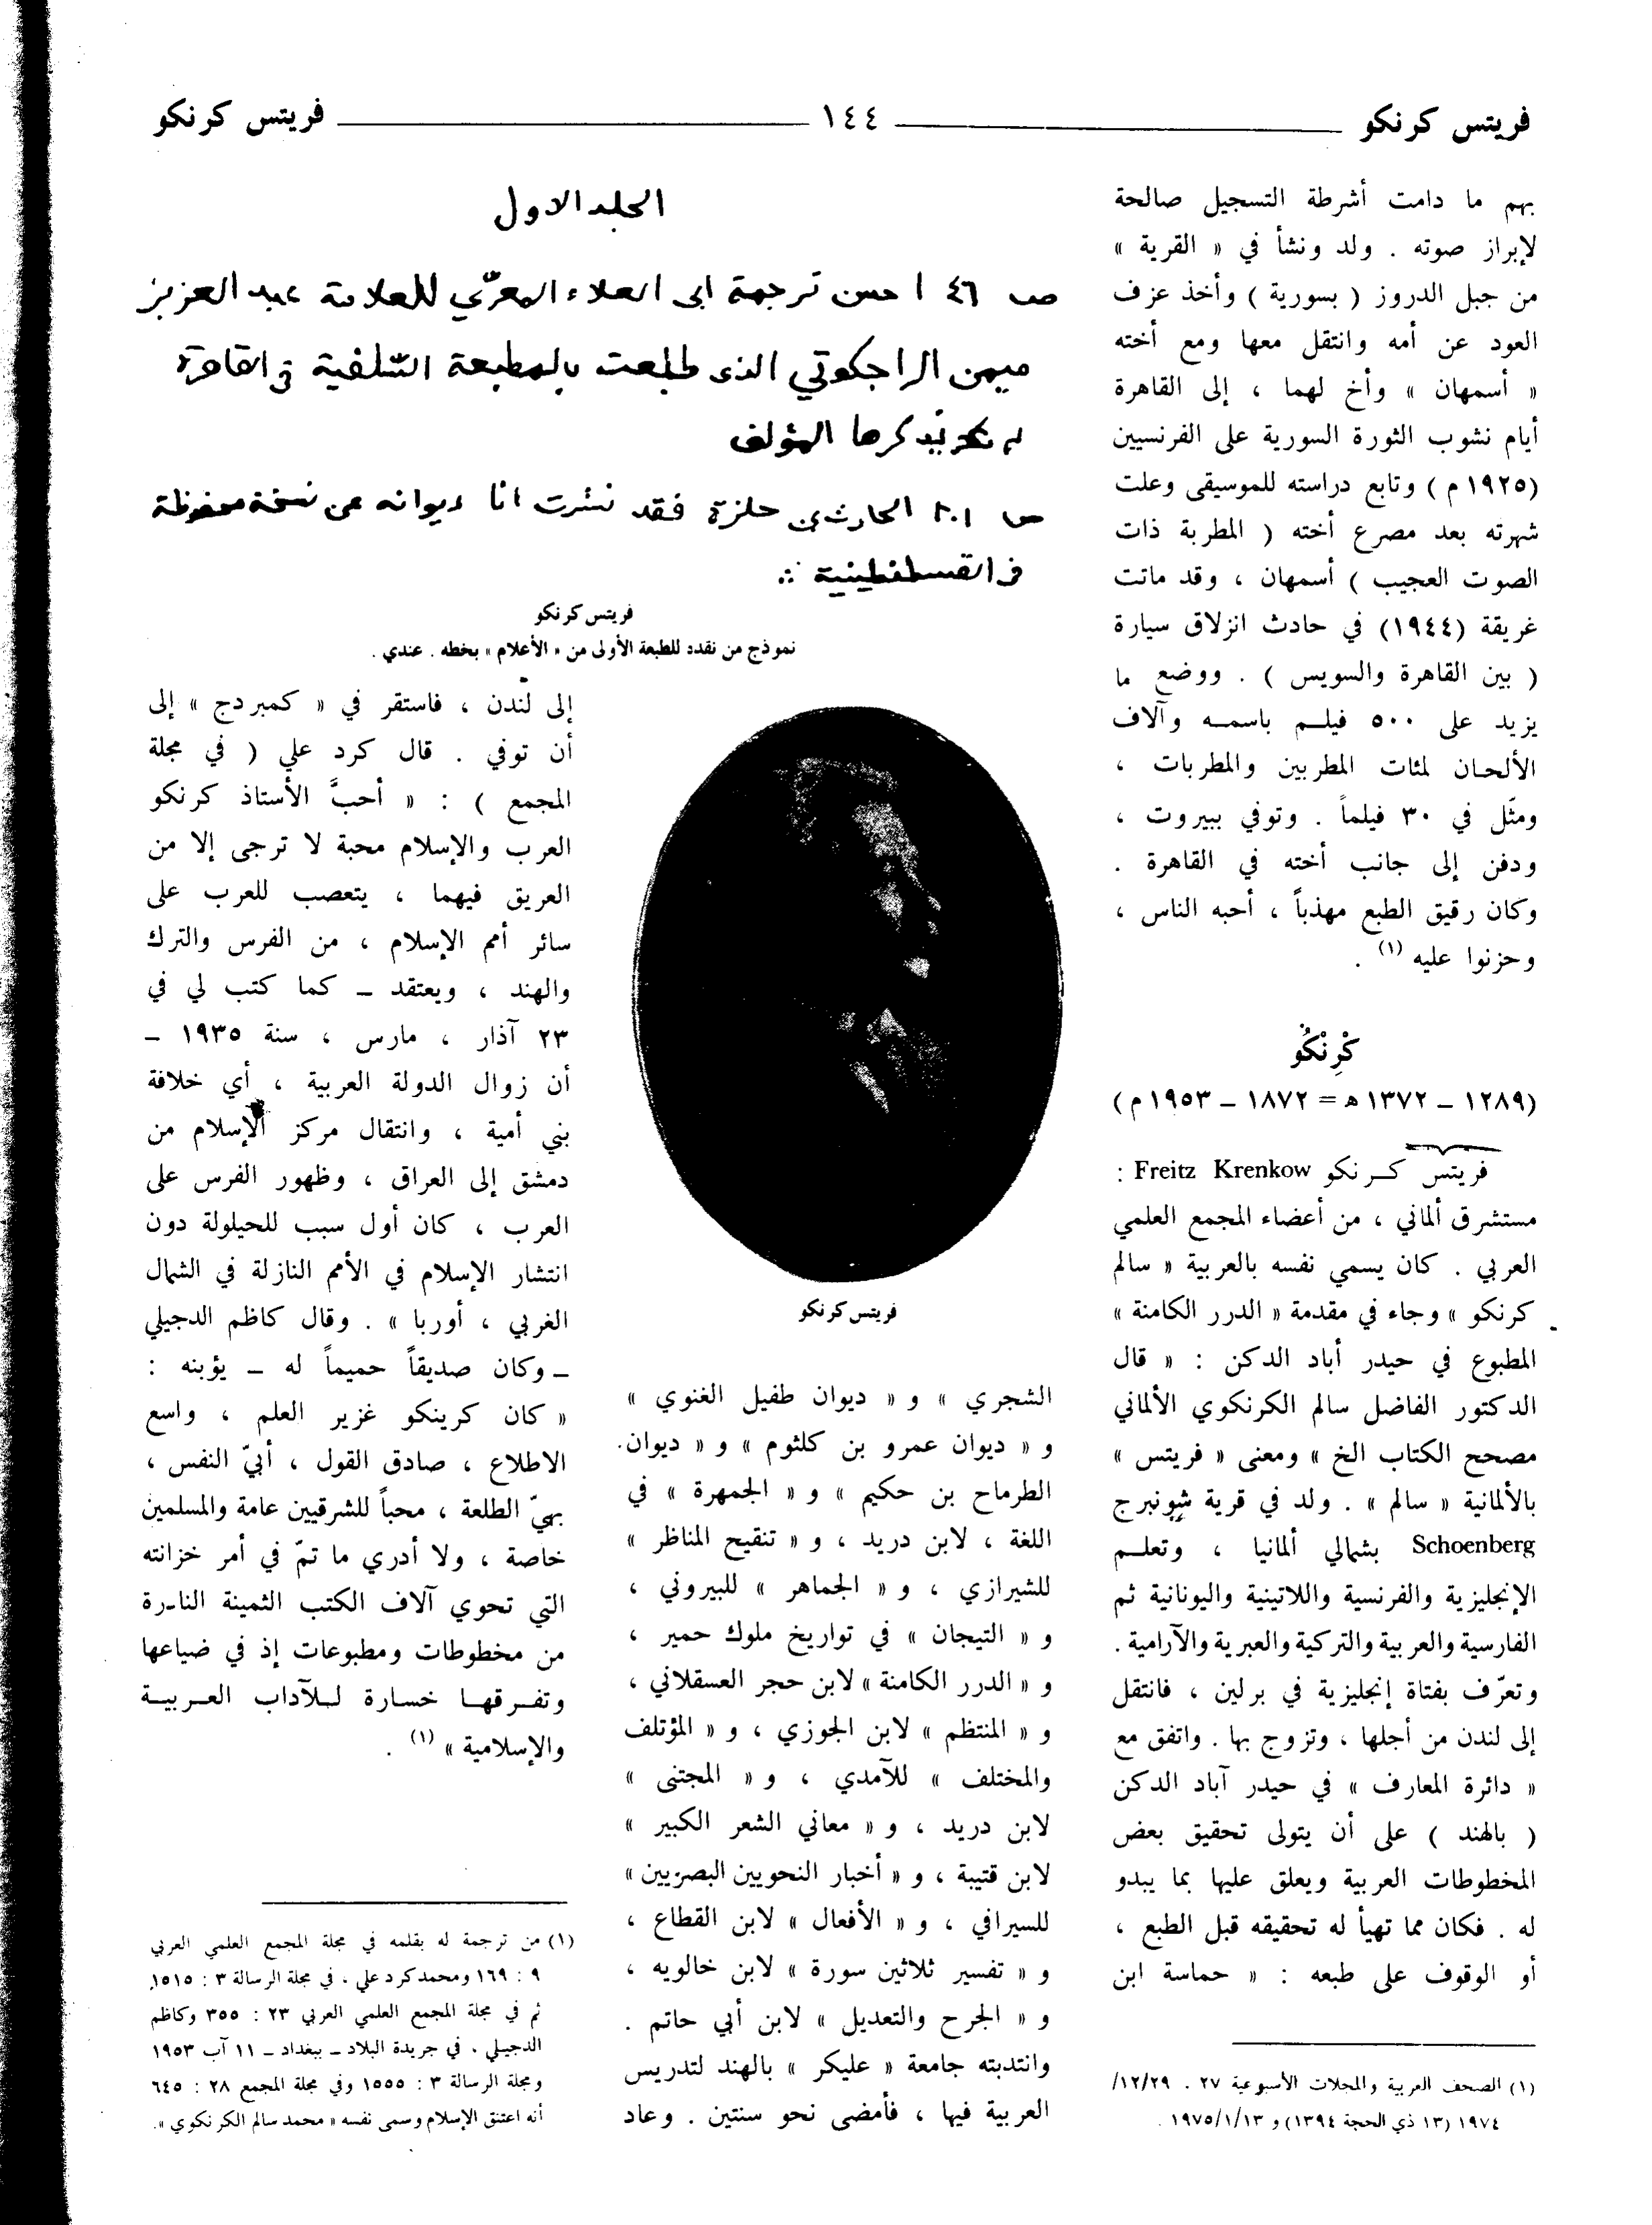 فريتس كرنكو ١٤٤ فريتس كرنكو
بهم ما دامت أشرطة التسجيل صالحة
لإبراز صوته . ولد ونشأ في « القرية »
من جبل الدروز ( بسورية ) وأخذ عزف
العود عن أمه وانتقل معها ومع أخته
« أسمهان » وأخ لهما ، إلى القاهرة
أيام نشوب الثورة السورية على الفرنسيين
(١٩٢٥ م ) وتابع دراسته للموسيقى وعلت
شهرته بعد مصرع أخته ( المطربة ذات
الصوت العجيب ) أسمهان ، وقد ماتت
غريقة (١٩٤٤) في حادث انزلاق سيارة
( بين القاهرة والسويس ) . ووضع ما
يزيد على ٥٠٠ فيلم باسمه وآلاف
الألحان لمئات المطربين والمطربات ،
ومثّل في ٣٠ فيلماً . وتوفي ببيروت ،
ودفن إلى جانب أخته في القاهرة .
وكان رقيق الطبع مهذباً ، أحبه الناس ،
وحزنوا عليه (١) .
كْرِنْكُو
(١٢٨٩ – ١٣٧٢ ه = ١٨٧٢ – ١٩٥٣ م )
فريتس كرنكو Freitz Krenkow :
مستشرق ألماني ، من أعضاء المجمع العلمي
العربي . كان يسمي نفسه بالعربية « سالم
كرنكو » وجاء في مقدمة « الدرر الكامنة »
المطبوع في حيدر أباد الدكن : « قال
الدكتور الفاضل سالم الكرنكوي الألماني
مصحح الكتاب الخ » ومعنى « فريتس »
بالألمانية « سالم » . ولد في قرية شونبرج
Schoenberg بشمالي ألمانيا ، وتعلم
الإنجليزية والفرنسية واللاتينية واليونانية ثم
الفارسية والعربية والتركية والعبرية والآرامية .
وتعرّف بفتاة إنجليزية في برلين ، فانتقل
إلى لندن من أجلها ، وتزوج بها . واتفق مع
« دائرة المعارف » في حيدر آباد الدكن
( بالهند ) على أن يتولى تحقيق بعض
المخطوطات العربية ويعلق عليها بما يبدو
له . فكان مما تهيأ له تحقيقه قبل الطبع ،
أو الوقوف على طبعه : « حماسة ابن
(١) الصحف العربية والمجلات الأسبوعية ٢٧ . ١٢/٢٩/
١٩٧٤ (١٣ ذي الحجة ١٣٩٤) و ١٩٧٥/١/١٣ .
الجلد الاول
ص ٤٦ احسن ترجمة ابى العلاء المعرّي للعلامة عبد العزيز
ميمن الراجكوتي الذى طلبعت بالمطبعة السّلفية فى القاهرة
لم يذكرها المؤلف
ص ٢٠١ الحارث بن حلزة فقد نشرت انا ديوانه عن نسخة محفوظة
فى القسطنطينية
فريتس كرنكو
نموذج من نقده للطبعة الأولى من « الأعلام » بخطه . عندي .
فريتس كرنكو
الشجري » و « ديوان طفيل الغنوي »
و « ديوان عمرو بن كلثوم » و « ديوان
الطرماح بن حكيم » و « الجمهرة » في
اللغة ، لابن دريد ، و « تنقيح المناظر »
للشيرازي ، و « الجماهر » للبيروني ،
و « التيجان » في تواريخ ملوك حمير ،
و « الدرر الكامنة » لابن حجر العسقلاني ،
و « المنتظم » لابن الجوزي ، و « المؤتلف
والمختلف » للآمدي ، و « المجتنى »
لابن دريد ، و « معاني الشعر الكبير »
لابن قتيبة ، و « أخبار النحويين البصريين »
للسيرافي ، و « الأفعال » لابن القطاع ،
و « تفسير ثلاثين سورة » لابن خالويه ،
و « الجرح والتعديل » لابن أبي حاتم .
وانتدبته جامعة « عليكر » بالهند لتدريس
العربية فيها ، فأمضى نحو سنتين . وعاد
إلى لندن ، فاستقر في « كمبردج » إلى
أن توفي . قال كرد علي ( في مجلة
المجمع ) : « أحبَّ الأستاذ كرنكو
العرب والإسلام محبة لا ترجى إلا من
العريق فيهما ، يتعصب للعرب على
سائر أمم الإسلام ، من الفرس والترك
والهند ، ويعتقد – كما كتب لي في
٢٣ آذار ، مارس ، سنة ١٩٣٥ –
أن زوال الدولة العربية ، أي خلافة
بني أمية ، وانتقال مركز الإسلام من
دمشق إلى العراق ، وظهور الفرس على
العرب ، كان أول سبب للحيلولة دون
انتشار الإسلام في الأمم النازلة في الشمال
الغربي ، أوربا » . وقال كاظم الدجيلي
– وكان صديقاً حميماً له – يؤبنه :
« كان كرينكو غزير العلم ، واسع
الاطلاع ، صادق القول ، أبيّ النفس ،
بهيّ الطلعة ، محباً للشرقيين عامة والمسلمين
خاصة ، ولا أدري ما تمّ في أمر خزانته
التي تحوي آلاف الكتب الثمينة النادرة
من مخطوطات ومطبوعات إذ في ضياعها
وتفرقها خسارة للآداب العربية
والإسلامية » (١) .
(١) من ترجمة له بقلمه في مجلة المجمع العلمي العربي
٩ : ١٦٩ ومحمد كرد علي ، في مجلة الرسالة ٣ : ١٥١٥
ثم في مجلة المجمع العلمي العربي ٢٣ : ٣٥٥ وكاظم
الدجيلي ، في جريدة البلاد – ببغداد – ١١ آب ١٩٥٣
ومجلة الرسالة ٣ : ١٥٥٥ وفي مجلة المجمع ٢٨ : ٦٤٥
أنه اعتنق الإسلام وسمى نفسه « محمد سالم الكرنكوي » .